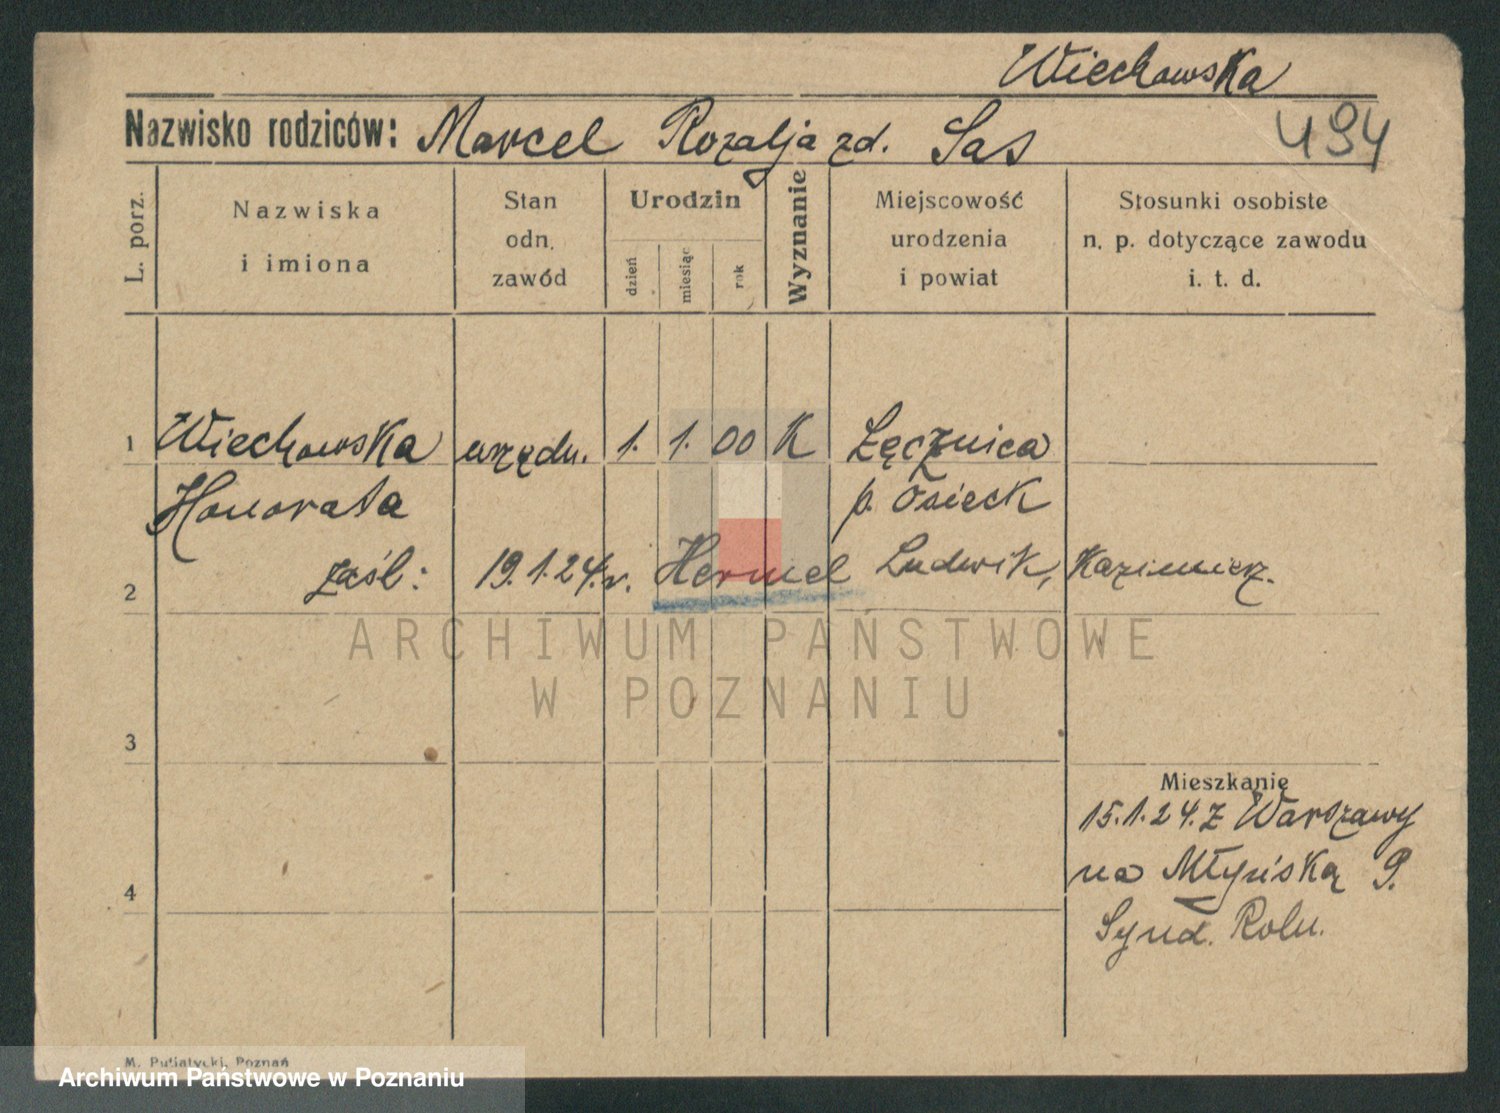 Wiechowska
Nazwisko rodziców: Marcel Rozalja zd. Sas 494
L. porz.
Nazwiska
i imiona
Stan
odn.
zawód
Urodzin
dzień
miesiąc
rok
Wyznanie
Miejscowość
urodzenia
i powiat
Stosunki osobiste
n. p. dotyczące zawodu
i. t. d.
1 Wiechowska urzędn. 1. 1. 00 K Łęcznica
Honorata p. Osieck
2 zaśl: 19.1.24.r. Hermel Ludwik, Kazimierz.
ARCHIWUM PAŃSTWOWE
W POZNANIU
3
Mieszkanie
15.1.24. z Warszawy
na Młyńską 9.
4
Synd. Roln.
M. Putiatycki, Poznań
Archiwum Państwowe w Poznaniu